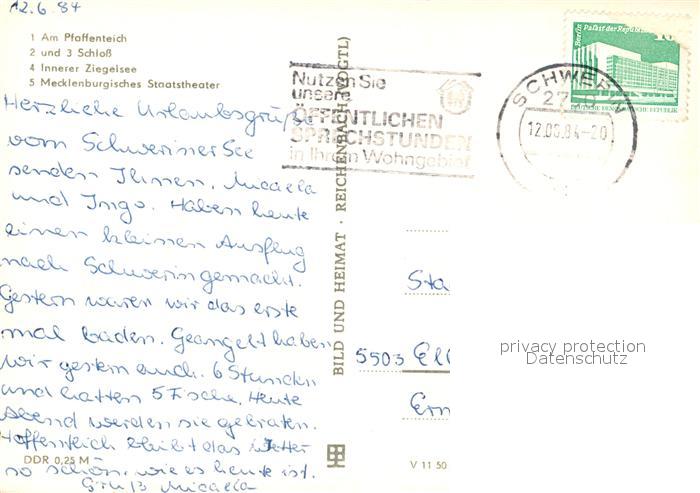 12.6.84
1 Am Pfaffenteich
2 und 3 Schloß
4 Innerer Ziegelsee
5 Mecklenburgisches Staatstheater
Herzliche Urlaubsgrüße
vom Schweriner See
senden Ihnen, Micaela
und Ingo. Haben heute
einen kleinen Ausflug
nach Schwerin gemacht.
Gestern waren wir das erste
mal baden. Geangelt haben
wir gestern auch. 6 Stunden
und hatten 5 Fische. Heute
Abend werden sie gebraten.
Hoffentlich bleibt das Wetter
so schön, wie es heute ist.
Gruß Micaela
DDR 0,25 M
BILD UND HEIMAT · REICHENBACH (VOGTL)
V 11 50
Nutzen Sie
unsere
ÖFFENTLICHEN
SPRECHSTUNDEN
in Ihrem Wohngebiet
SCHWERIN
12.06.84-20
Berlin, Palast der Republik
10
DEUTSCHE DEMOKRATISCHE REPUBLIK
Sta
5503 Ell
Ern
privacy protection
Datenschutz